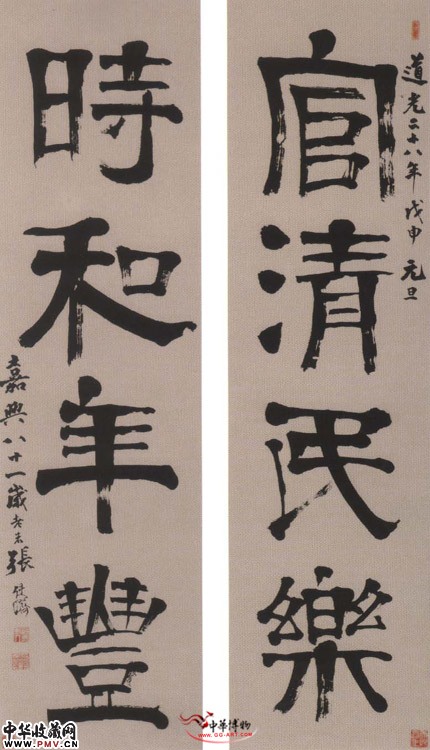 道光二十八年戊申元旦
官清民樂
時和年豐
嘉興八十一歲老未張廷濟
中华博物
www.gg-art.com
中华收藏网
www.PMV.cn